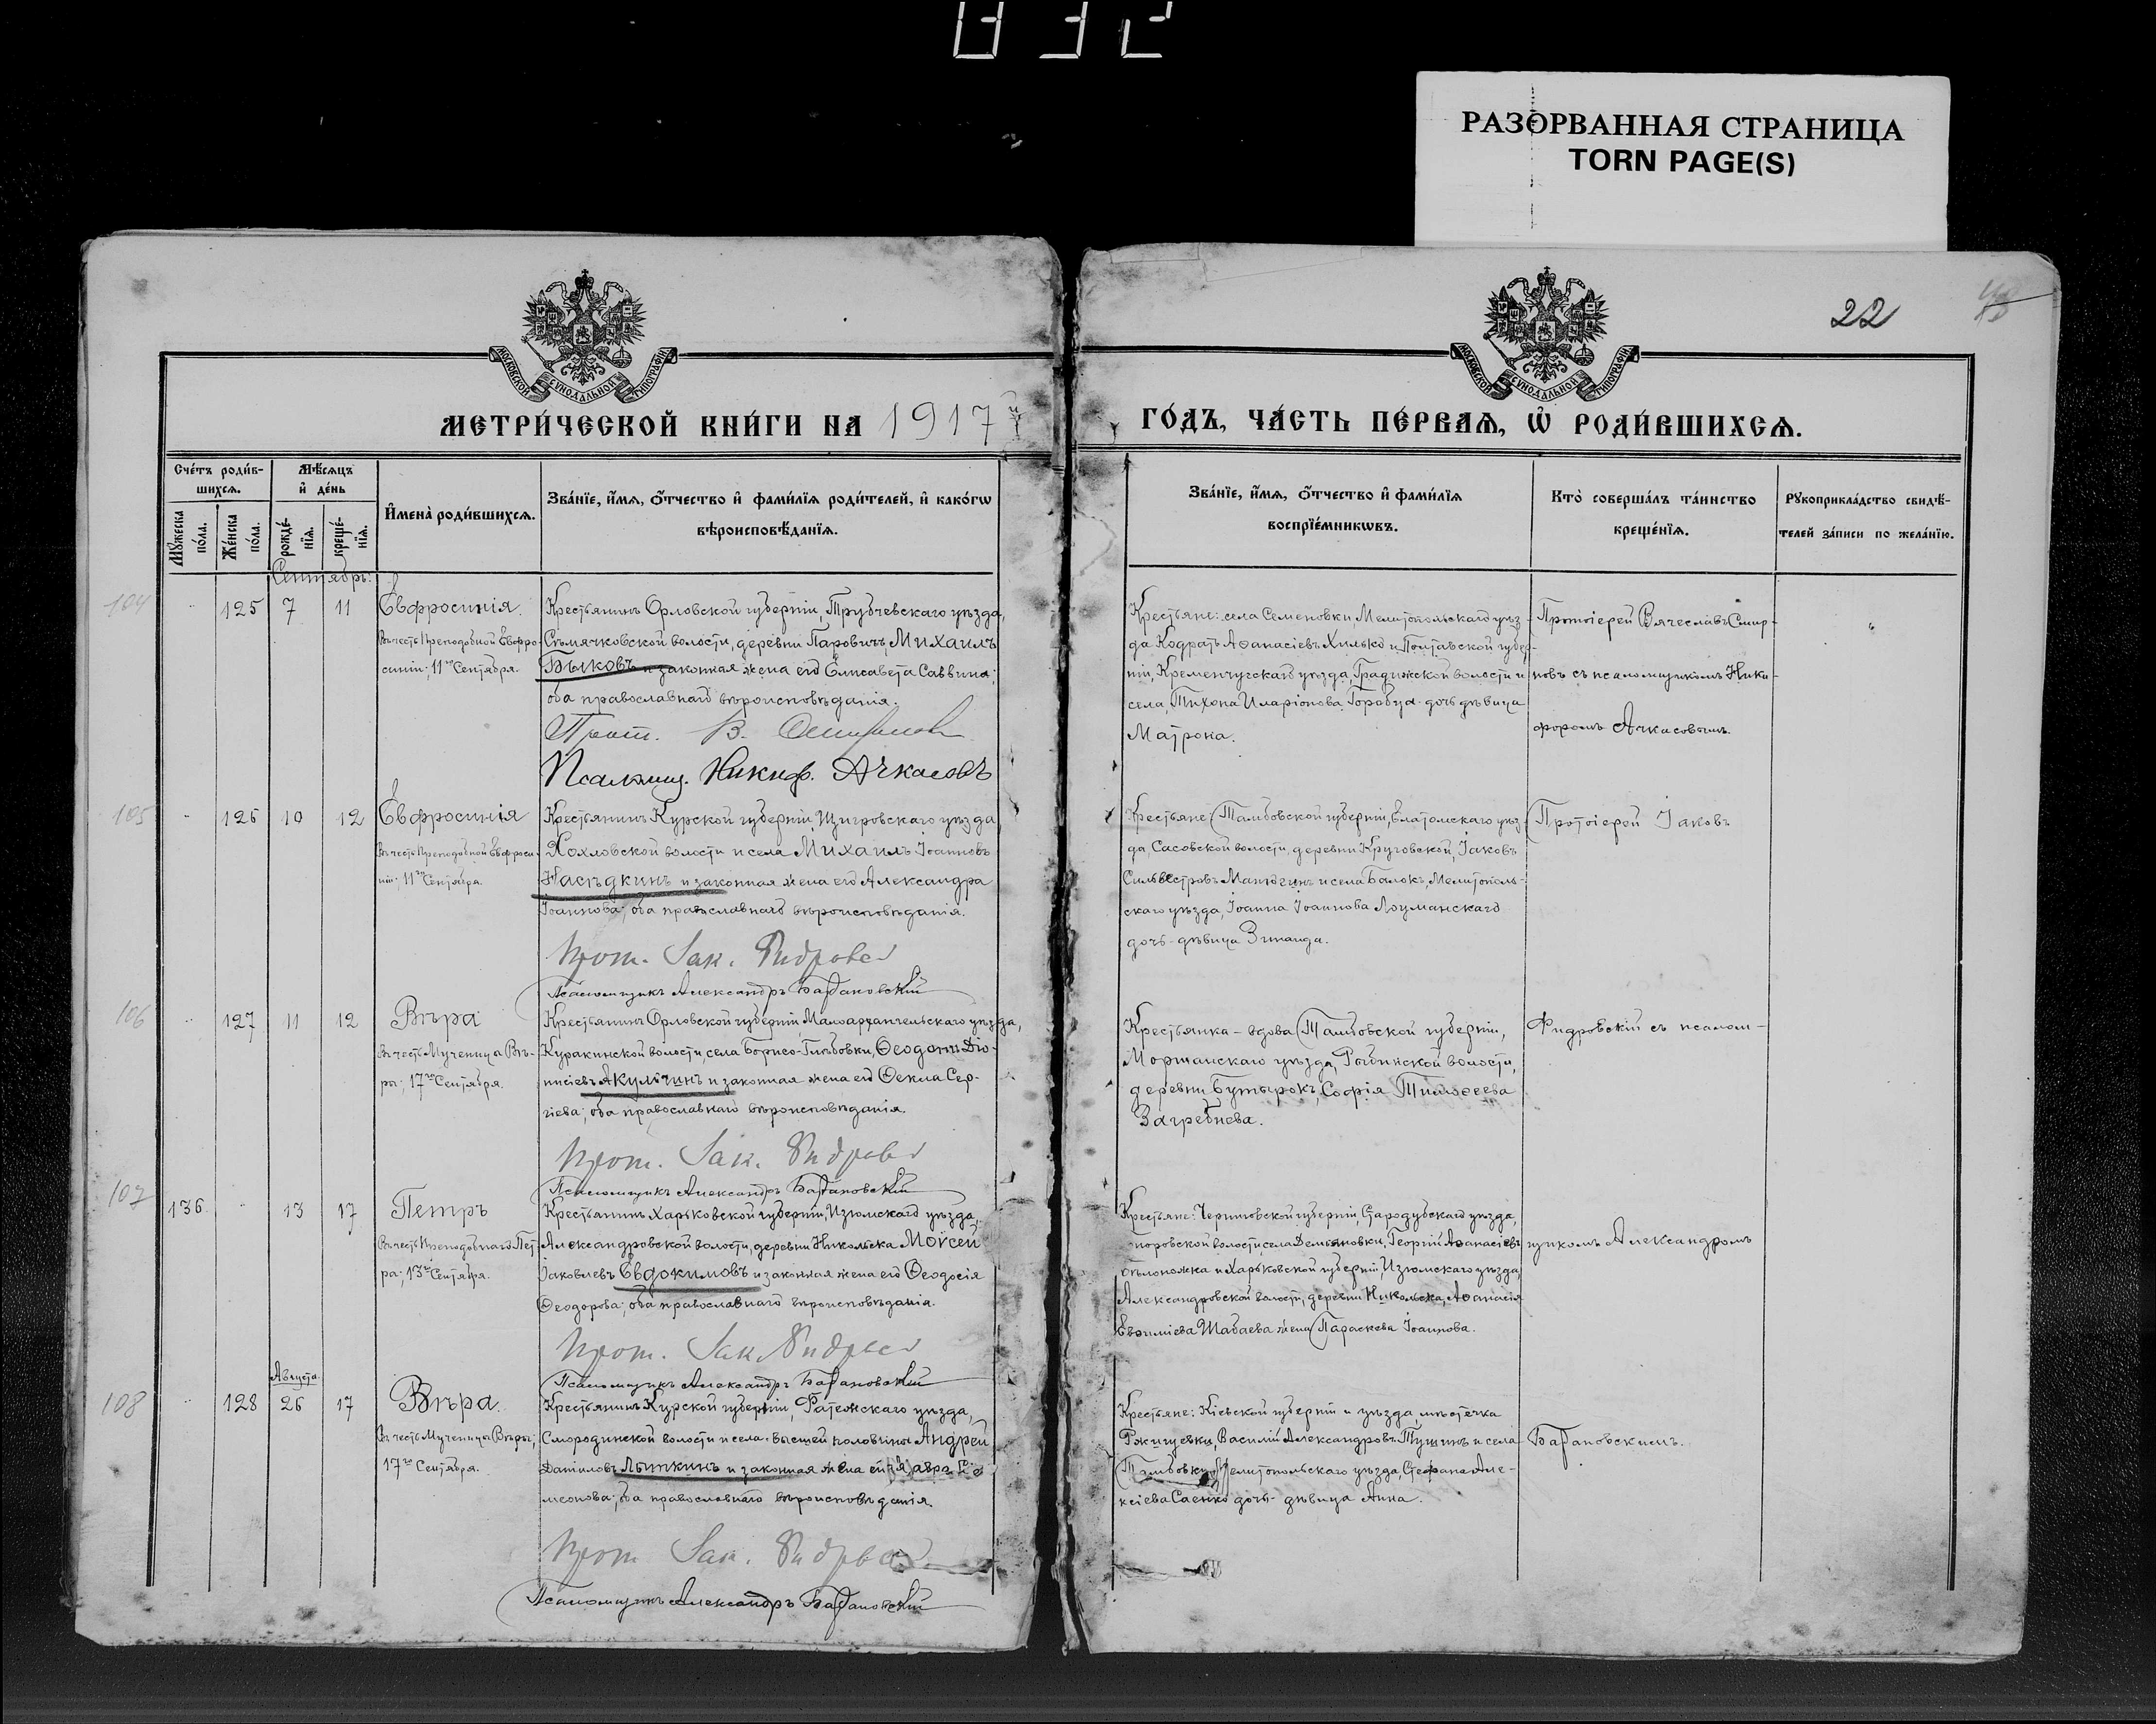 032
РАЗОРВАННАЯ СТРАНИЦА
TORN PAGE(S)
22
МОСКОВСКОЙ СѴНОДАЛЬНОЙ ТИПОГРАФІИ
МОСКОВСКОЙ СѴНОДАЛЬНОЙ ТИПОГРАФІИ
МЕТРИ́ЧЕСКОЙ КНИ́ГИ НА 1917 й
ГО́ДЪ, ЧА́СТЬ ПЕ́РВАѦ, Ѡ҆ РОДИ́ВШИХСѦ.
Сче́тъ роди́в-
шихсѧ.
Мѣ́сѧцъ
и҆ де́нь
Мꙋ́жеска по́ла.
Же́нска по́ла.
рожде́-нїѧ.
креще́-нїѧ.
И҆мена̀ роди́вшихсѧ.
Зва́нїе, и҆́мѧ, ѻ҆́тчество и҆ фами́лїѧ роди́телей, и҆ како́гѡ
вѣроисповѣ́данїѧ.
Зва́нїе, и҆́мѧ, ѻ҆́тчество и҆ фами́лїѧ
воспрїе́мникѡвъ.
Кто̀ соверша́лъ та́инство
креще́нїѧ.
Рꙋкоприкла́дство свидѣ́-
телей за́писи по жела́нїю.
Сентябрь:
104
125 7 11
Евфросинія.
Въ честь Преподобной Евфро-
синіи; 11го Сентября.
Крестьянинъ Орловской губерніи, Трубчевскаго уѣзда,
Сѣмячковской волости, деревни Паровичъ Михаилъ
Быковъ и законная жена его Елисавета Саввина;
оба православнаго вѣроисповѣданія.
Прот. В. Смирновъ
Псаломщ. Никиф. Ачкасовъ
Крестьяне: села Семеновки Мелитопольскаго уѣз-
да Кодратъ Аѳанасіевъ Хилько и Полтавской губер-
ніи, Кременчугскаго уѣзда, Градижской волости и
села, Тихона Иларіонова Горобца дочь дѣвица
Матрона.
Протоіерей Вячеславъ Смир-
новъ съ псаломщикомъ Ники-
форомъ Ачкасовымъ.
105
126 10 12
Евфросинія
Въ честь Преподобной Евфроси-
ніи; 11го Сентября.
Крестьянинъ Курской губерніи, Щигровскаго уѣзда,
Хохловской волости и села Михаилъ Іоанновъ
Насѣдкинъ и законная жена его Александра
Іоаннова; оба православнаго вѣроисповѣданія.
Прот. Іак. Фидровск
Псаломщикъ Александръ Барановскій
Крестьяне Тамбовской губерніи, Елатомскаго уѣз-
да, Сасовской волости, деревни Круговской, Іаковъ
Сильвестровъ и села Балокъ, Мелитополь-
скаго уѣзда, Іоанна Іоаннова Лоуманскаго
дочь-дѣвица Зинаида.
Протоіерей Іаковъ
106
127 11 12
Вѣра
Въ честь Мученицы Вѣ-
ра; 17го Сентября.
Крестьянинъ Орловской губерніи, Малоархангельскаго уѣзда,
Куракинской волости, села Борисо-Глѣбовки, Ѳеодотъ Діо-
нисіевъ Акульчинъ и законная жена его Ѳекла Сер-
гіева; оба православнаго вѣроисповѣданія.
Прот. Іак. Фидровск
Псаломщикъ Александръ Барановскій
Крестьянка - вдова Тамбовской губерніи,
Моршанскаго уѣзда, Рыбинской волости,
деревни Бутырокъ, Софія Тимоѳеева
Загребнева.
Фидровскій съ псалом-
107
136 13 17
Петръ
Въ честь Преподобнаго Пет-
ра; 13го Сентября.
Крестьянинъ Харьковской губерніи, Изюмскаго уѣзда,
Александровской волости, деревни Никольска Моѵсей
Іаковлевъ Евдокимовъ и законная жена его Ѳеодосія
Ѳеодорова; оба православнаго вѣроисповѣданія.
Прот. Іак. Фидровск
Псаломщикъ Александръ Барановскій
Крестьяне: Черниговской губерніи, Стародубскаго уѣзда,
волости села Демьяновки, Георгій Аѳанасіевъ
Бѣлоножка и Харьковской губерніи, Изюмскаго уѣзда,
Александровской волости, деревни Никольска, Аѳанасія
Евѳиміева Шабаева жена Параскева Іоаннова.
щикомъ Александромъ
108
Августа
128 26 17
Вѣра.
Въ честь Мученицы Вѣры;
17го Сентября.
Крестьянинъ Курской губерніи, Фатежскаго уѣзда,
Смородинской волости и села высшей половины Андрей
Даніиловъ Лыткинъ и законная жена его
меонова; оба православнаго вѣроисповѣданія.
Прот. Іак. Фидровск
Псаломщикъ Александръ Барановскій
Крестьяне: Кіевской губерніи и уѣзда, мѣстечка
Ржищевки, Василій Александровъ Тушинъ и села
Тамбовки Мелитопольскаго уѣзда, Стефана Але-
ксіева Саенко дочь - дѣвица Анна.
Барановскимъ.